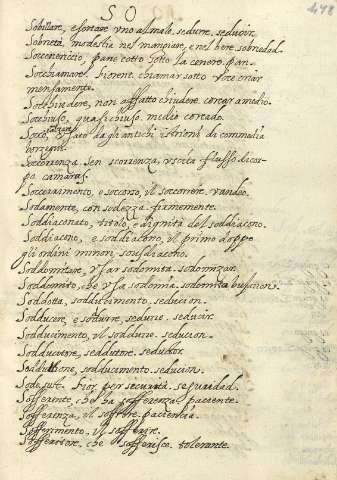 SO
472
Sobillare, esortare uno al male. sedurre. seducir.
Sobrietà modestia nel mangiare, e nel bere. sobriedad.
Soccenericio, pane cotto sotto la cenere. pan.
Socchiamare. sotto voce
mensamente.
Socchiudere, non affatto chiudere. cerrar a medio.
Socchiuso, quasi chiuso. medio cerrado.
Socco, usato dagli antichi istrioni di commedia
borzegui.
Soccorrenza. scorrenza, uscita flusso di cor-
po. camaras.
Soccorrimento, e soccorso, il soccorrere.
Sodamente, con sodezza. firmemente.
Soddiaconato, titolo, e dignità del soddiacono.
Soddiacono, e soddiacono, il primo doppo
gli ordini minori. sousdiacono.
Soddomitare, usar sodomita.
Soddomito, che usa sodomia. sodomita
Soddotta, sodducimento. seducion.
Sodducere, e sodurre, sedurre. seducir.
Sodducimento, il soddurre. seducion.
Sodducitore, seduttore. seductor.
Sodduttione, sodducimento. seducion.
Sode, sust. per securtà. seguridad.
Sofferente, che ha sofferenza. paciente.
Sofferenza, il soffrire. paciencia.
Sofferimento, il sofferire.
Sofferitore, che sofferisce. tolerante.